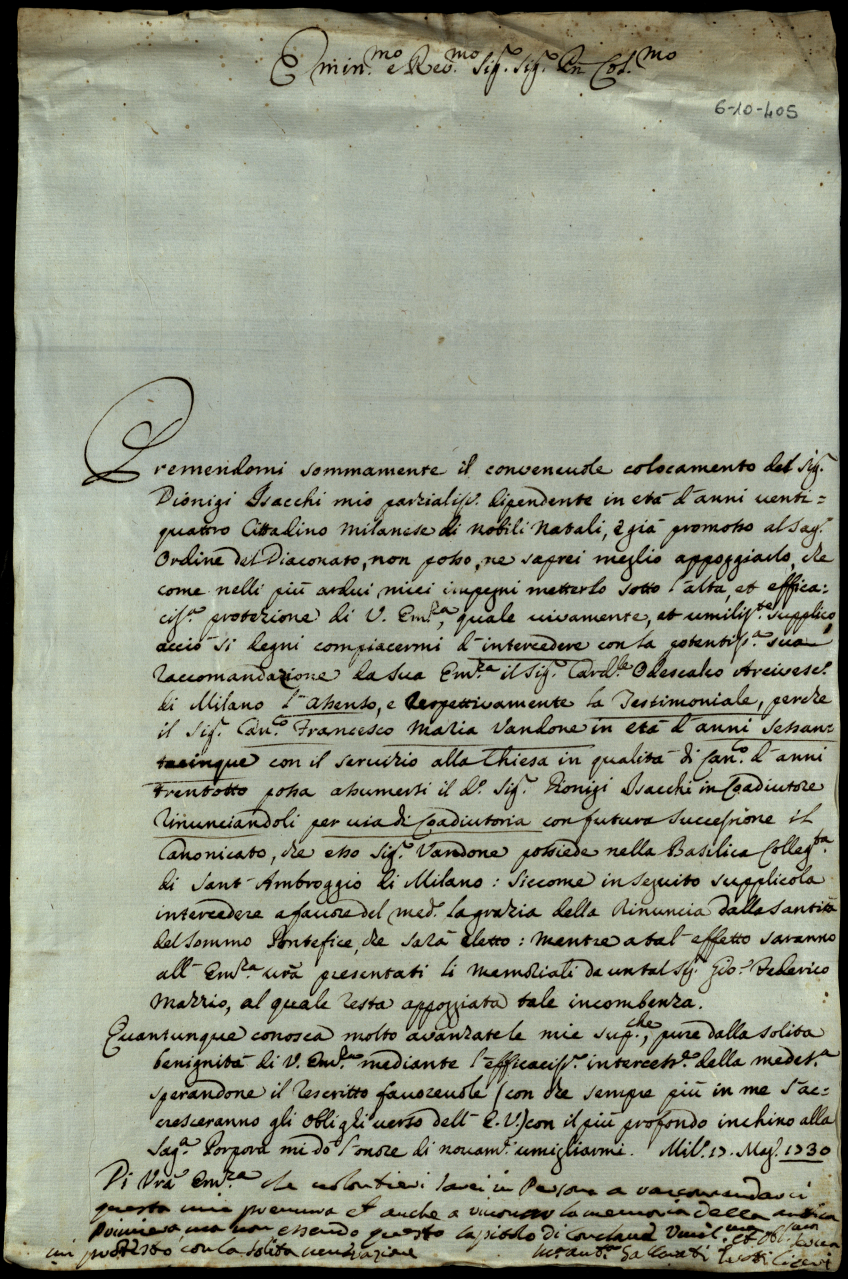 Emin.mo e Reo.mo Sig.r Sig.r Pn Col.mo
6-10-405
Premendomi sommamente il conveneuole colocamento del Sig.r
Dionigi Isacchi mio parzialiss.o dipendente in età d'anni uenti=
quattro Cittadino Milanese di nobili Natali, e già promosso al Sag.o
Ordine del Diaconato, non posso, ne saprei meglio appoggiarlo, che
come nelli più ardui miei impegni metterlo sotto l'alta, et effica:
ciss.a protezione di V. Em.za, quale uiuamente, et umiliss.te supplico
acciò si degni compiacermi d'intercedere con la potentiss.a sua
raccomandazione da sua Em.za il Sig.r Card.le Odescalco Arciuesc.o
di Milano l'assenso, e respettiuamente la Testimoniale, perche
il Sig.r Can.co Francesco Maria Vandone in età d'anni sessan=
tacinque con il seruizio alla Chiesa in qualità di Can.co d'anni
trentotto possa assumersi il d.o Sig.r Dionigi Isacchi in Coadiutore
rinunciandoli per uia di Coadiutoria con futura successione il
Canonicato, che esso Sig.r Vandone possiede nella Basilica Colleg.ta
di Sant'Ambroggio di Milano: siccome in seguito supplicola
intercedere a fauore del med.o la grazia della Rinuncia dalla Santità
del Sommo Pontefice, che sarà eletto: mentre a tal effetto saranno
all'Em.za urã presentati li memoriali da un tal Sig.r Gio. Federico
Mazzio, al quale resta appoggiata tale incombenza.
Quantunque conosca molto auanzate le mie sup.che, pure dalla solita
benignità di V. Em.za mediante l'efficaciss.a intercess.e della medes.a
sperandone il rescritto fauoreuole (con che sempre più in me s'ac=
cresceranno gli obligli uerso dell'E.V.) con il più profondo inchino alla
Sag.a Porpora mi dò l'onore di nouam.te umigliarmi. Mil.o 17. Mag.o 1730
Di Vrã Em.za che uolontieri sarei in Persona a raccomandarci
questa mia premura et anche a la memoria della antica
ma non essendo questo capitolo di Conclaue Vmil.mo et Obl.mo
mi protesto con la solita uenerazione